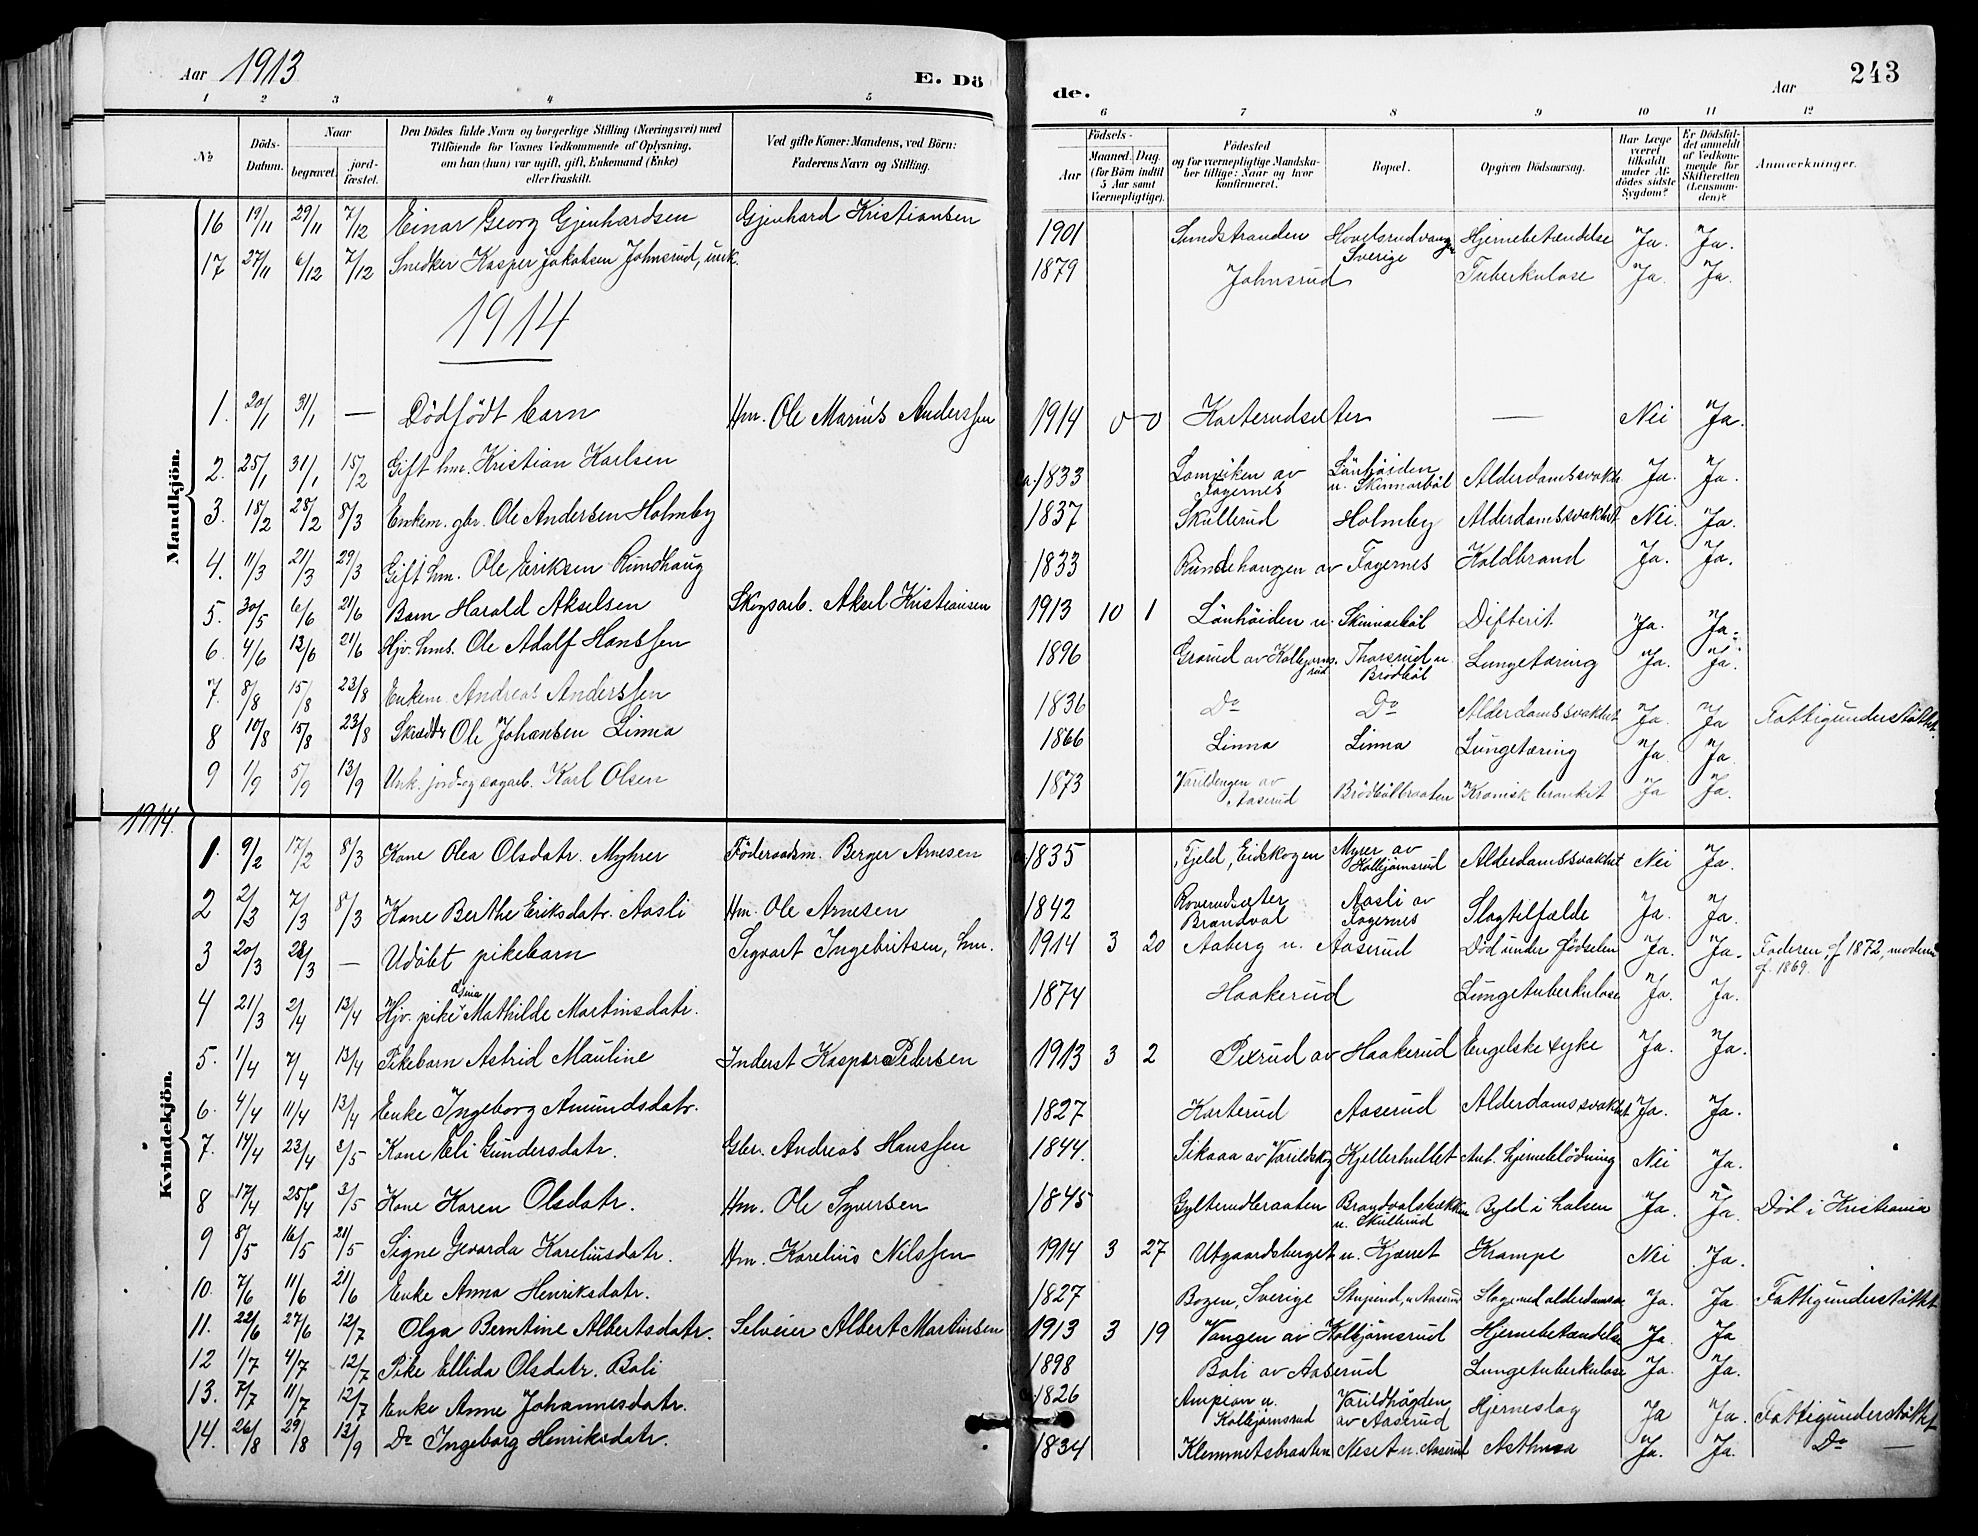 Aar 1913 E. Dö de. Aar 243
1 2 3 4 5 6 7 8 9 10 11 12
No Döds-Datum. Naar begravet. jord-fæstet. Den Dödes fulde Navn og borgerlige Stilling (Næringsvei) med Tilföiende for Voxnes Vedkommende af Oplysning, om han (hun) var ugift, gift, Enkemand (Enke) eller fraskilt. Ved gifte Koner: Mandens, ved Börn: Faderens Navn og Stilling. Födsels- Aar Maaned. Dag. (for Börn indtil 5 Aar samt Værnepligtige). Födested og for værnepligtige Mandskaber tillige: Naar og hvor konfirmeret. Bopæl. Opgiven Dödsaarsag. Har Læge været tilkaldt under Afdödes sidste Sygdom? Er Dödsfaldet anmeldt af Vedkommende for Skifteretten (Lensmanden)? Anmærkninger.
Mandkjön.
16 19/11 29/11 7/12 Einar Georg Gjenhardsen Gjenhard Kristiansen 1901 Sundstranden Hovelsrudvangen Sverige Hjernebetændelse Ja. Ja.
17 27/11 6/12 7/12 Snedker Kasper Jakobsen Johnsrud, unk. 1879 Johnsrud Tuberkulose Ja. Ja.
1914
1. 20/1 31/1 — Dödfödt barn Hm. Ole Marius Anderssen 1914 0 0 Korterudsæter — Nei Ja.
2. 25/1 31/1 15/2 Gift hm. Kristian Karlsen ca. 1833 Lomviken av Fagernes Lönhöiden u. Skinnarböl Alderdomssvakh Ja. Ja.
3. 18/2 28/2 8/3 Enkem. gbr. Ole Andersen Holmby 1837 Skullerud Holmby Alderdomssvakhet Nei. Ja.
4. 11/3 21/3 29/3 Gift hm. Ole Eriksen Rundhaug 1833 Rundehaugen av Fagernes Koldbrand Ja. Ja.
5. 30/5 6/6 21/6 Barn Harald Akselsen Skogsarb. Aksel Kristiansen 1913 10 1 Lönhöiden u. Skinnarböl Difterit Ja. Ja.
6. 4/6 13/6 21/6 Hjv. hms. Ole Adolf Hanssen 1896 Grorud av Kolbjørnsrud Thorsrud u. Brödböl Lungetæring Ja. Ja.
7. 8/8 15/8 23/8 Enkem. Andreas Anderssen 1836 Do Do Alderdomssvakhet Ja. Ja Fattigunderstöttet.
8 10/8 15/8 23/8 Skrædder Ole Johansen Linna 1866 Linna Linna Lungetæring Ja. Ja.
9 1/9 5/9 13/9 Unk. jord- og sagarb. Karl Olsen 1873 Varildengen av Aaserud Brödbölbraaten Kronisk bronkit Ja Ja.
1914.
Kvindekjön.
1. 9/2 17/2 8/3 Kone Olea Olsdatr. Myhrer Föderaadsm. Berger Arnesen 1835 Fjeld, Eidskogen Myrer av Kolbjørnsrud Alderdomssvakhet Nei Ja.
2 2/3 7/3 8/3 Kone Berthe Eriksdatr. Aasli Hm. Ole Arnesen 1842 Roverudsæter Brandval Aasli av Fagernes Slagtilfælde Ja. Ja.
3 20/3 28/3 — Udöbt pikebarn Segvart Ingebritsen, hm. 1914 3 20 Aaberg u. Aaserud Död under födselen Ja. Ja. Faderen f. 1872, moderen f. 1869.
4 21/3 2/4 13/4 Hjv. pike Mathilde Martinsdatr. 1874 Haakerud Lungetuberkulose Ja. Ja.
5. 1/4 7/4 13/4 Pikebarn Astrid Mauline Inderst Kasper Pedersen 1913 3 2 Pexrud av Haakerud Engelske syke Ja. Ja.
6. 4/4 11/4 13/4 Enke Ingeborg Amundsdatr. 1827 Korterud Aaserud Alderdomssvakhet Ja. Ja.
7. 14/4 23/4 3/5 Kone Eli Gundersdatr. Gbr. Andreas Hanssen 1844. Sikaaa av Varildskog Kjellerhullet Ant. hjerneblödning Nei Ja.
8 17/4 25/4 3/5 Kone Karen Olsdatr. Hm. Ole Syversen 1845 Gylterudbraaten Brandvalsbakken u. Skullrud Byld i halsen Ja. Ja. Död i Kristiania
9 8/5 16/5 21/5 Signe Gevarda Kareliusdatr. Hm. Karelius Nilssen 1914 3 27 Utgaardsberget u. Kjærret Krampe Nei Ja.
10. 7/6 11/6 21/6 Enke Anna Henriksdatr. 1827 Bogen, Sverige u. Aaserud Slag med alderdomssv. Ja. Ja Fattigunderstöttet
11. 22/6 27/6 12/7 Olga Berntine Albertsdatr. Selveier Albert Martinsen 1913 3 19 Vangen av Kolbjørnsrud Hjernebetændelse Ja. Ja
12 1/7 4/7 12/7 Pike Ellida Olsdatr. Boli 1898 Boli av Aaserud Lungetuberkulose Ja. Ja.
13. 7/7 11/7 12/7 Enke Anne Johannesdatr. 1826 Ampian u. Kolbjørnsrud Varildhögden av Aaserud Hjerneslag Ja Ja. Fattigunderstöttet
14. 26/8 29/8 13/9 Do Ingeborg Henriksdatr. 1834 Klemmetsbraaten Neset u. Aaserud Asthma Ja. Ja. Do —